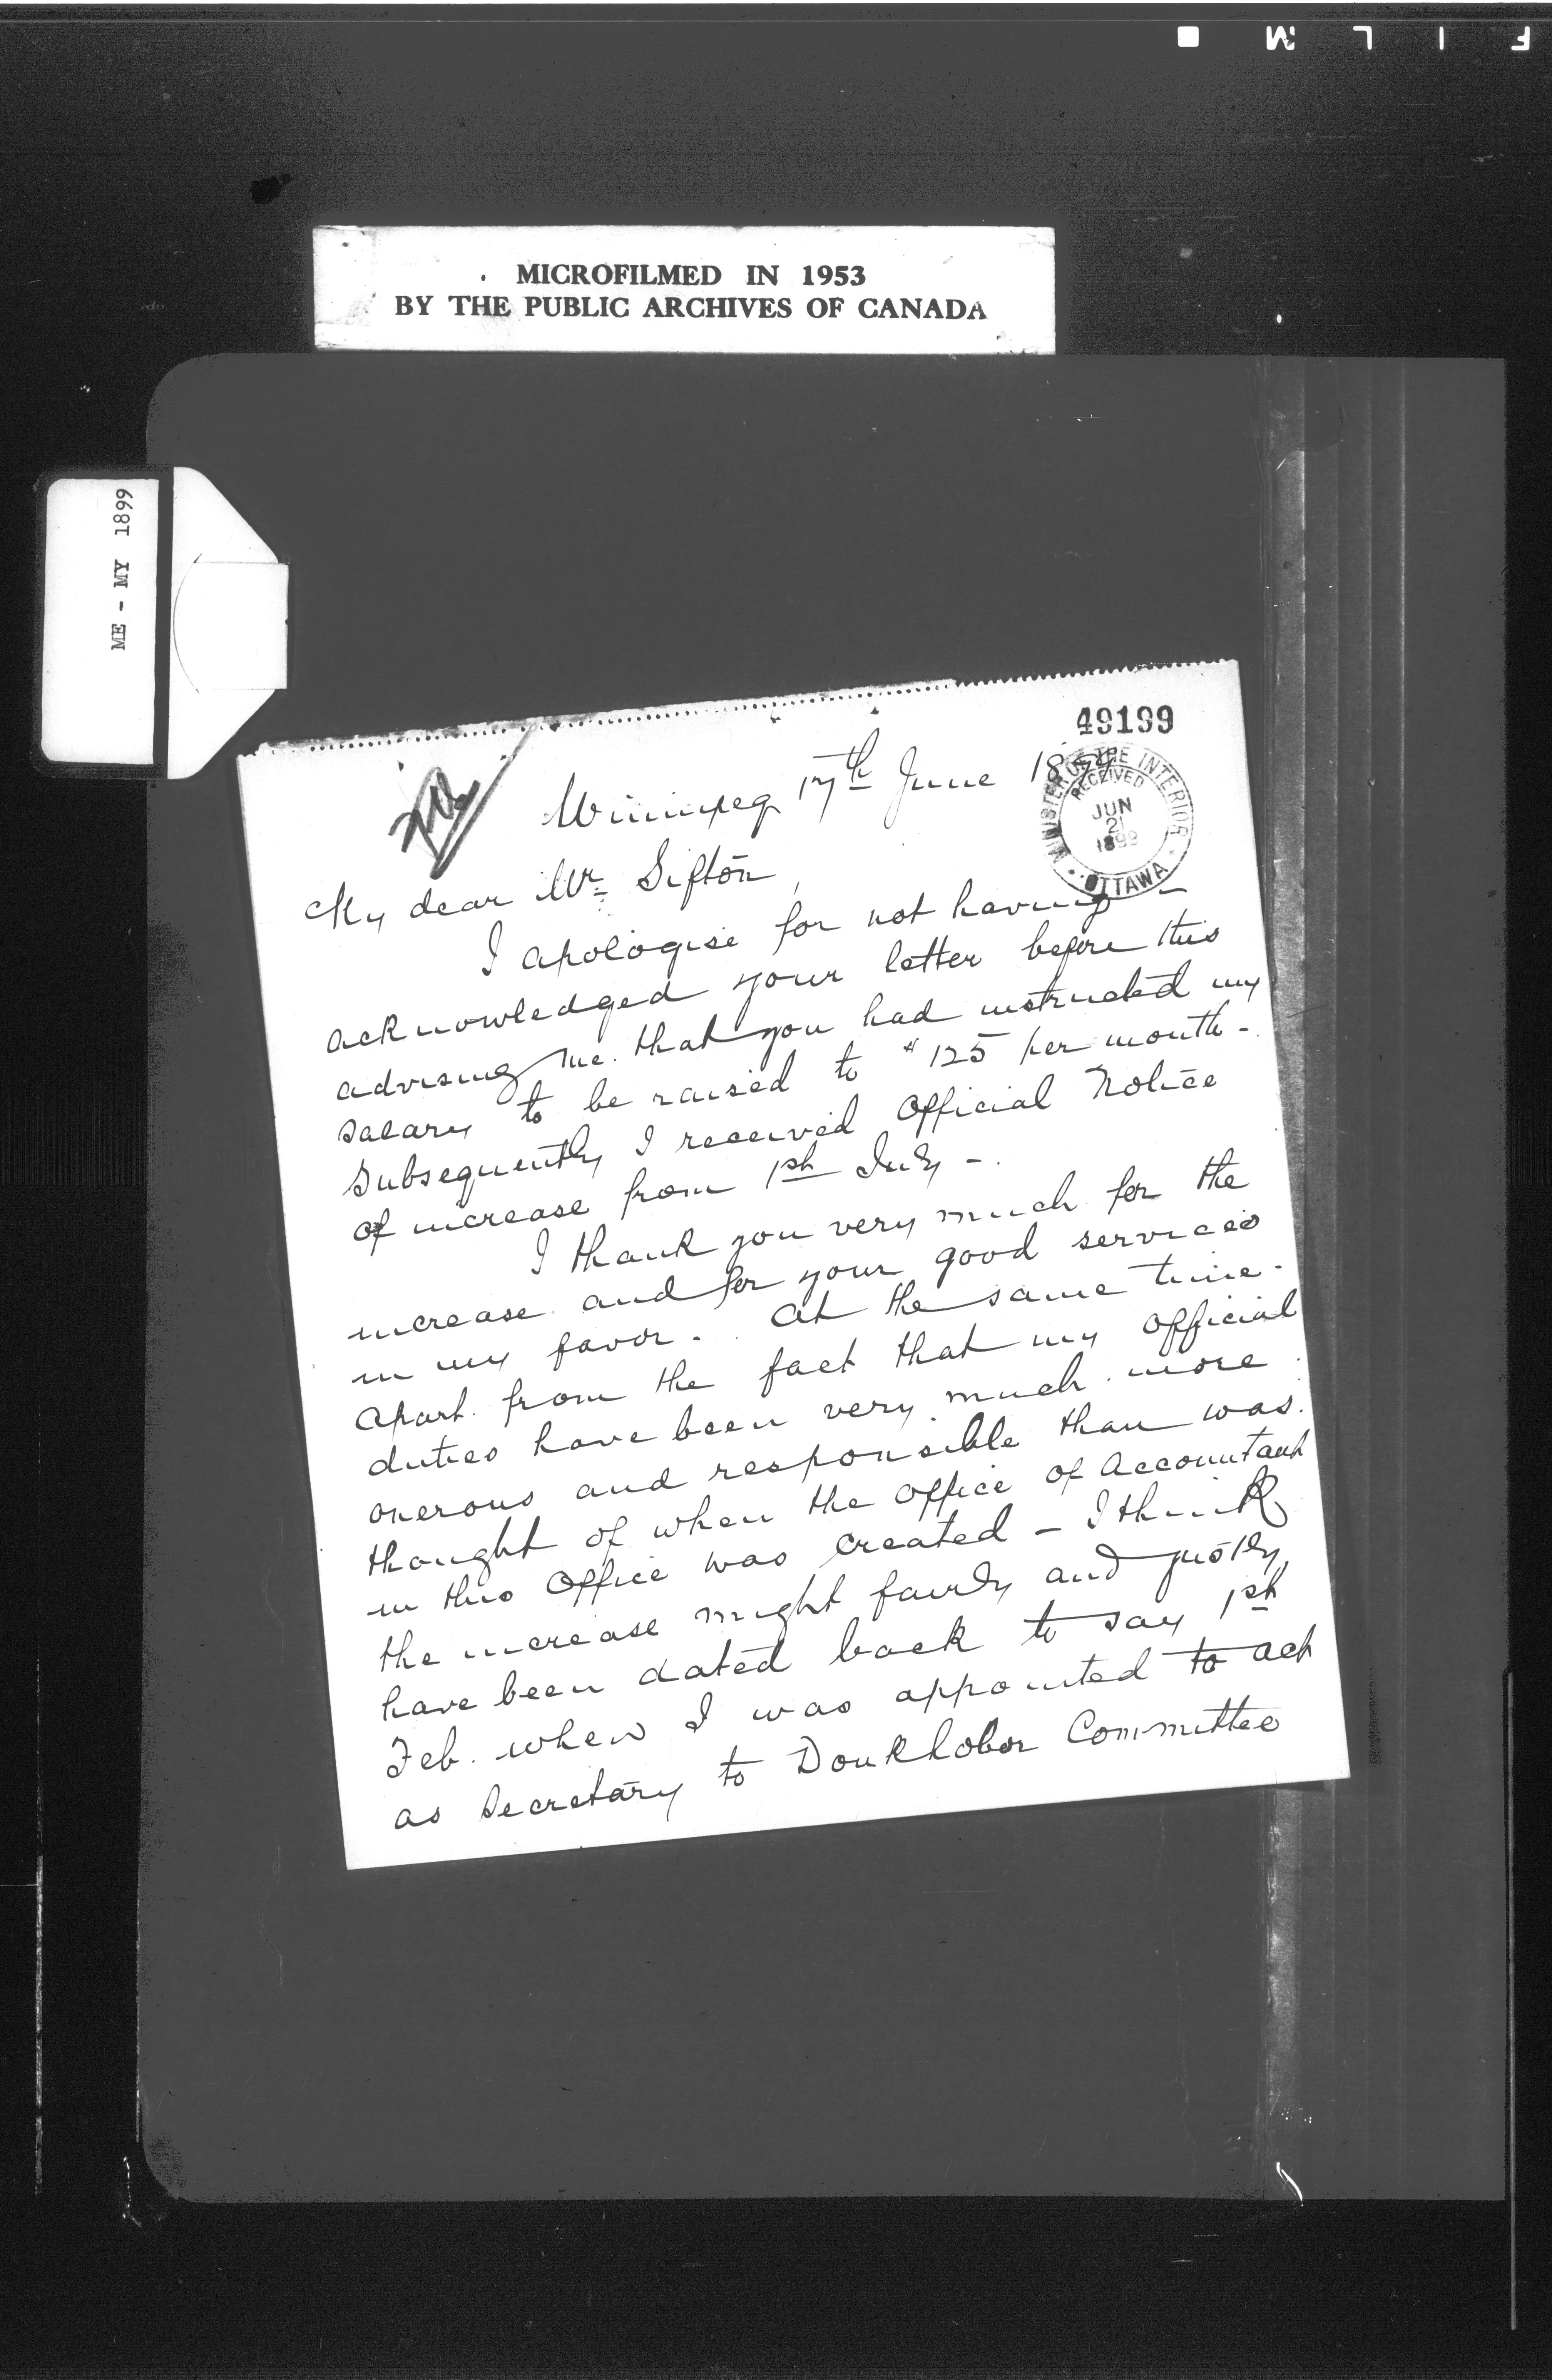 FILM
MICROFILMED IN 1953
BY THE PUBLIC ARCHIVES OF CANADA
ME - MY 1899
49199
Winnipeg 17th June 1899
MINISTER OF THE INTERIOR
RECEIVED
JUN
21
1899
OTTAWA
My dear Mr Sifton,
I apologise for not having
acknowledged your letter before this
advising me that you had instructed my
salary to be raised to $125 per month -
Subsequently I received Official Notice
of increase from 1st July -
I thank you very much for the
increase and for your good services
in my favor. At the same time -
apart from the fact that my official
duties have been very much more
onerous and responsible than was
thought of when the office of Accountant
in this Office was created - I think
the increase might fairly and justly
have been dated back to say 1st
Feb. when I was appointed to act
as Secretary to Doukhobor Committee